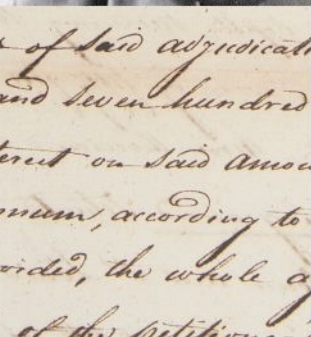 of said adjudicati
and seven hundred
terest on said amou
nnum, according to
orded, the whole a
of the petitione